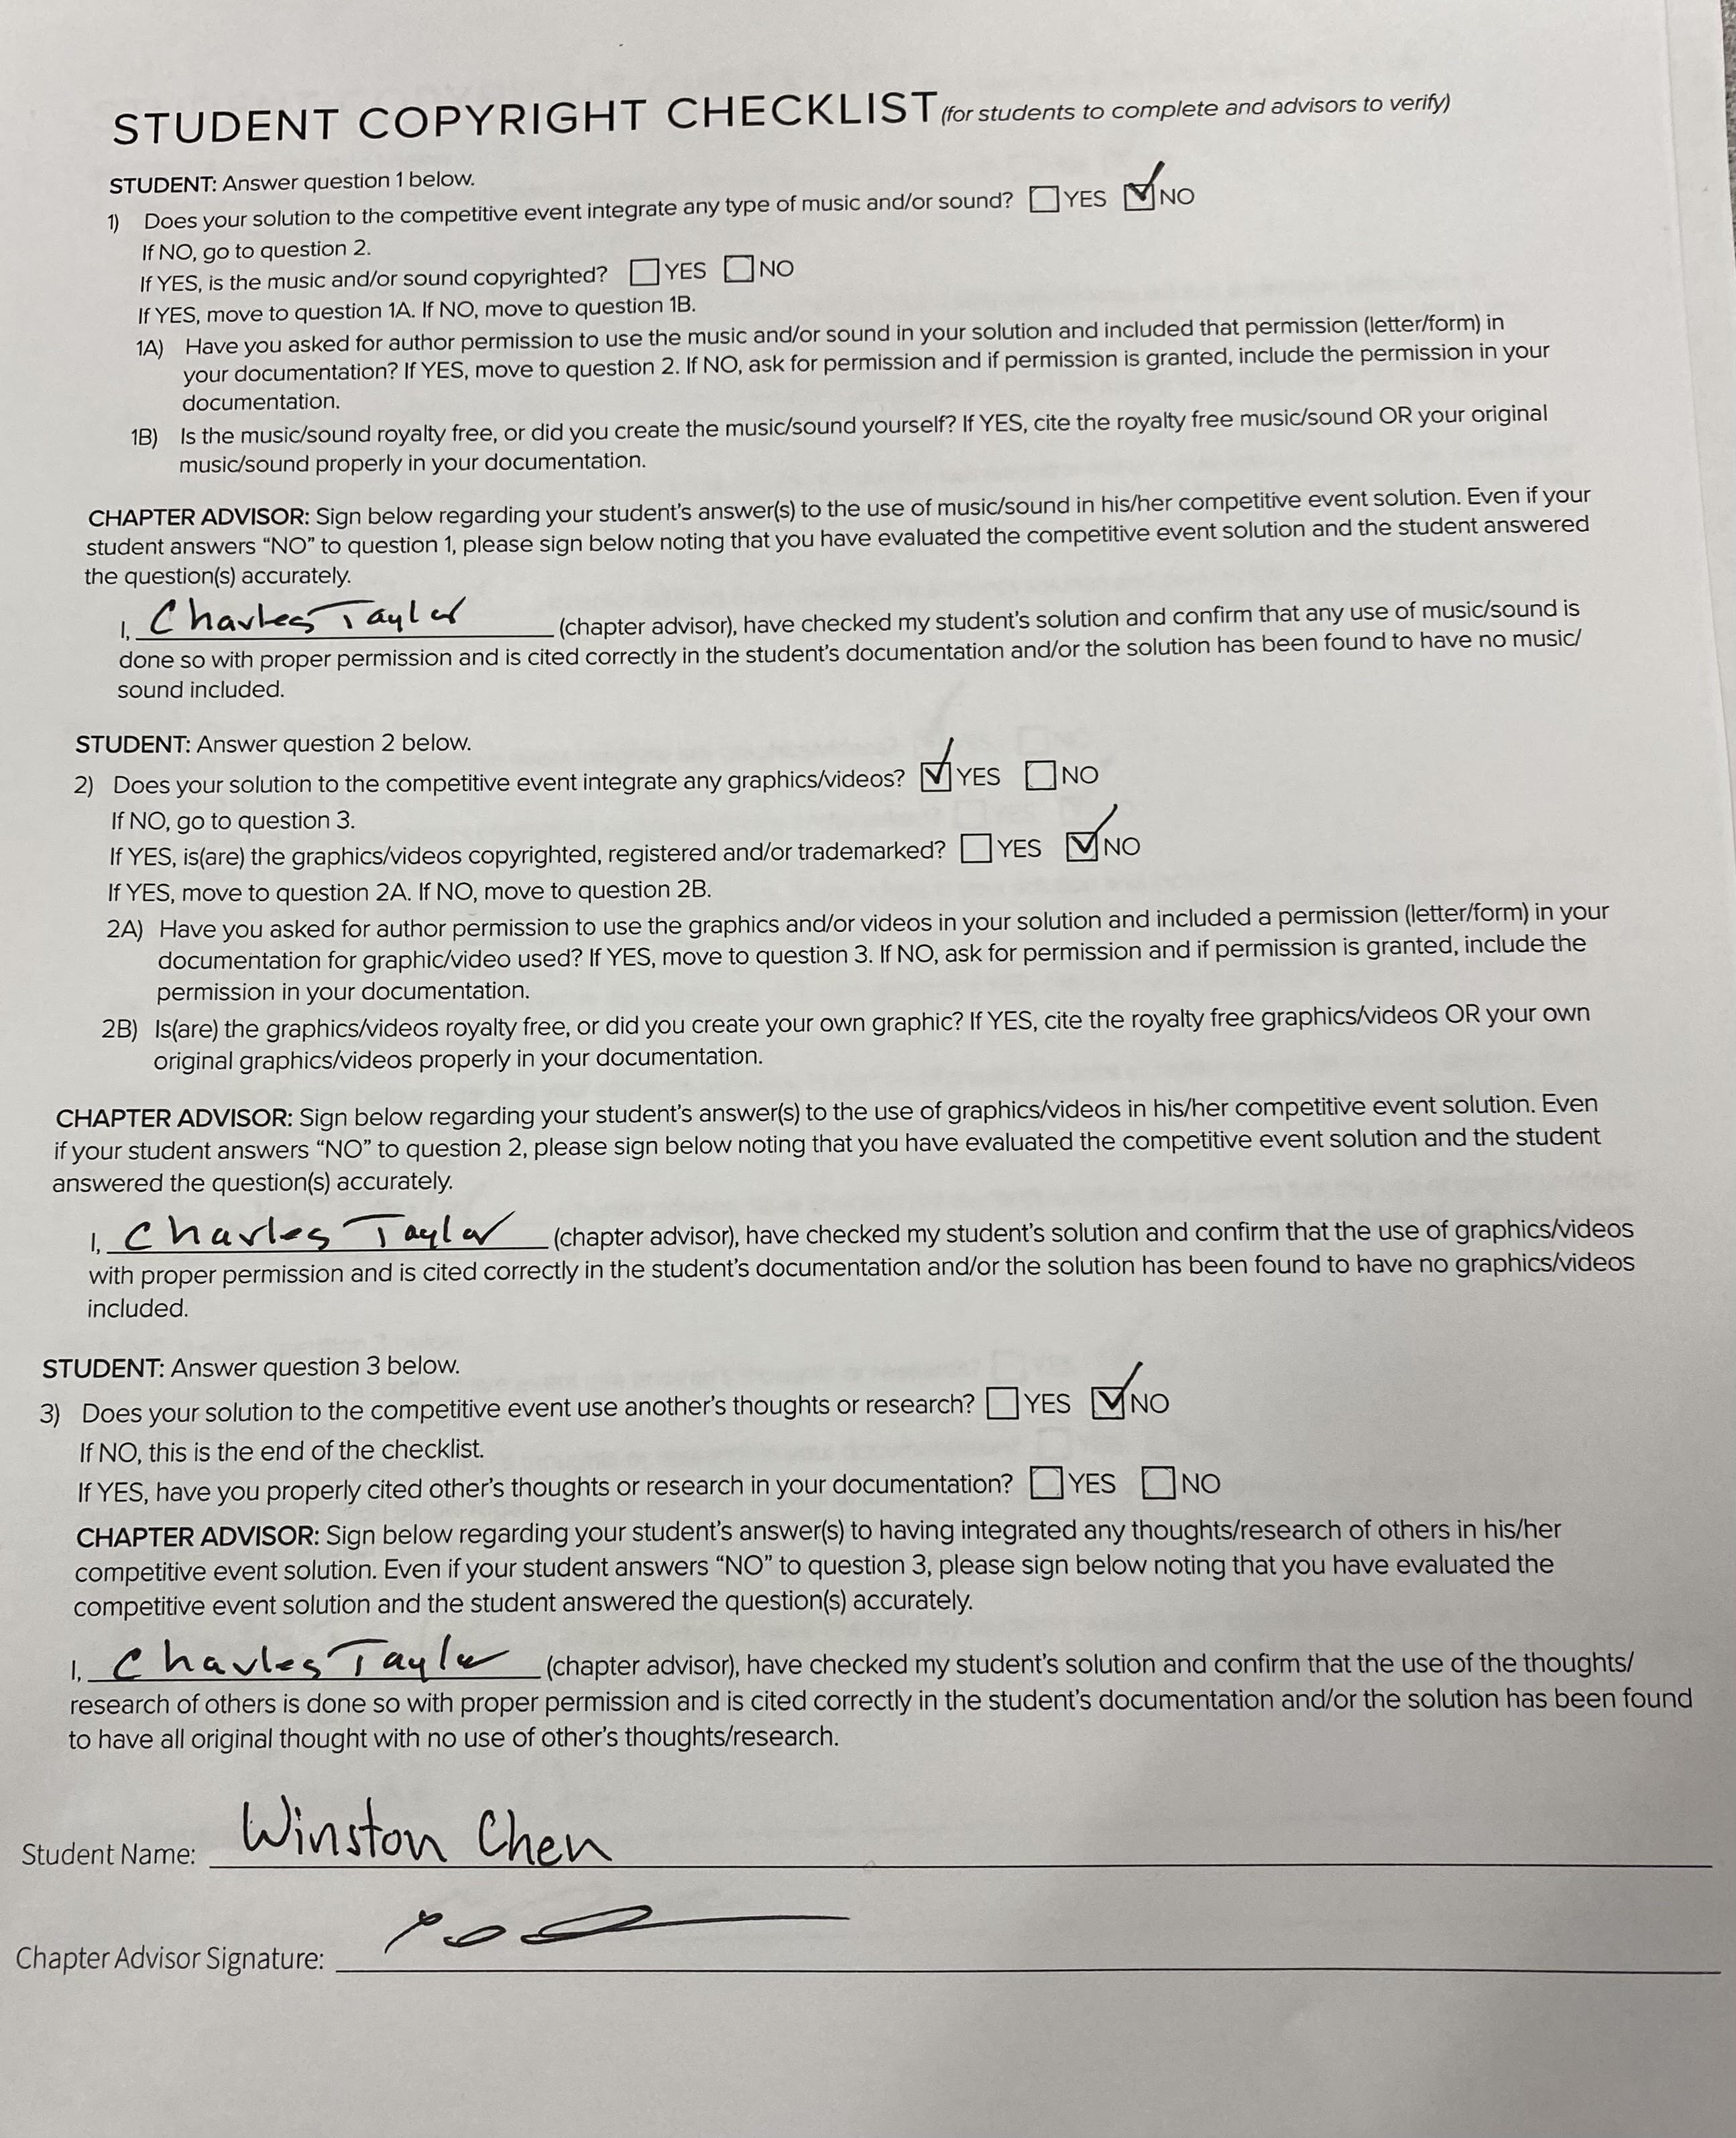 STUDENT COPYRIGHT CHECKLIST (for students to complete and advisors to verify)
STUDENT: Answer question 1 below.
1) Does your solution to the competitive event integrate any type of music and/or sound? YES NO
If NO, go to question 2.
If YES, is the music and/or sound copyrighted? YES NO
If YES, move to question 1A. If NO, move to question 1B.
1A) Have you asked for author permission to use the music and/or sound in your solution and included that permission (letter/form) in
your documentation? If YES, move to question 2. If NO, ask for permission and if permission is granted, include the permission in your
documentation.
1B) Is the music/sound royalty free, or did you create the music/sound yourself? If YES, cite the royalty free music/sound OR your original
music/sound properly in your documentation.
CHAPTER ADVISOR: Sign below regarding your student's answer(s) to the use of music/sound in his/her competitive event solution. Even if your
student answers “NO” to question 1, please sign below noting that you have evaluated the competitive event solution and the student answered
the question(s) accurately.
I, Charles Taylor (chapter advisor), have checked my student's solution and confirm that any use of music/sound is
done so with proper permission and is cited correctly in the student's documentation and/or the solution has been found to have no music/
sound included.
STUDENT: Answer question 2 below.
2) Does your solution to the competitive event integrate any graphics/videos? YES NO
If NO, go to question 3.
If YES, is(are) the graphics/videos copyrighted, registered and/or trademarked? YES NO
If YES, move to question 2A. If NO, move to question 2B.
2A) Have you asked for author permission to use the graphics and/or videos in your solution and included a permission (letter/form) in your
documentation for graphic/video used? If YES, move to question 3. If NO, ask for permission and if permission is granted, include the
permission in your documentation.
2B) Is(are) the graphics/videos royalty free, or did you create your own graphic? If YES, cite the royalty free graphics/videos OR your own
original graphics/videos properly in your documentation.
CHAPTER ADVISOR: Sign below regarding your student's answer(s) to the use of graphics/videos in his/her competitive event solution. Even
if your student answers “NO” to question 2, please sign below noting that you have evaluated the competitive event solution and the student
answered the question(s) accurately.
I, Charles Taylor (chapter advisor), have checked my student's solution and confirm that the use of graphics/videos
with proper permission and is cited correctly in the student's documentation and/or the solution has been found to have no graphics/videos
included.
STUDENT: Answer question 3 below.
3) Does your solution to the competitive event use another's thoughts or research? YES NO
If NO, this is the end of the checklist.
If YES, have you properly cited other's thoughts or research in your documentation? YES NO
CHAPTER ADVISOR: Sign below regarding your student's answer(s) to having integrated any thoughts/research of others in his/her
competitive event solution. Even if your student answers “NO” to question 3, please sign below noting that you have evaluated the
competitive event solution and the student answered the question(s) accurately.
I, Charles Taylor (chapter advisor), have checked my student's solution and confirm that the use of the thoughts/
research of others is done so with proper permission and is cited correctly in the student's documentation and/or the solution has been found
to have all original thought with no use of other's thoughts/research.
Student Name: Winston Chen
Chapter Advisor Signature: